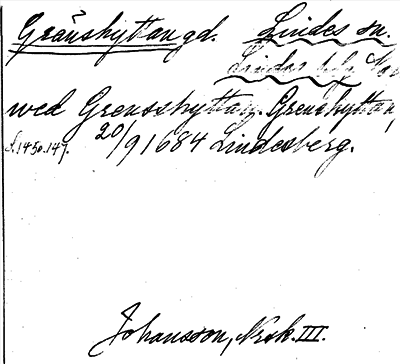 Gränshyttan gd. Lindes sn.
Lindes
wed Grensshyttan. Grenshyttan,
s. 145 o. 147. 20/9 1684 Lindesberg.
Johansson, Nrsk. III.